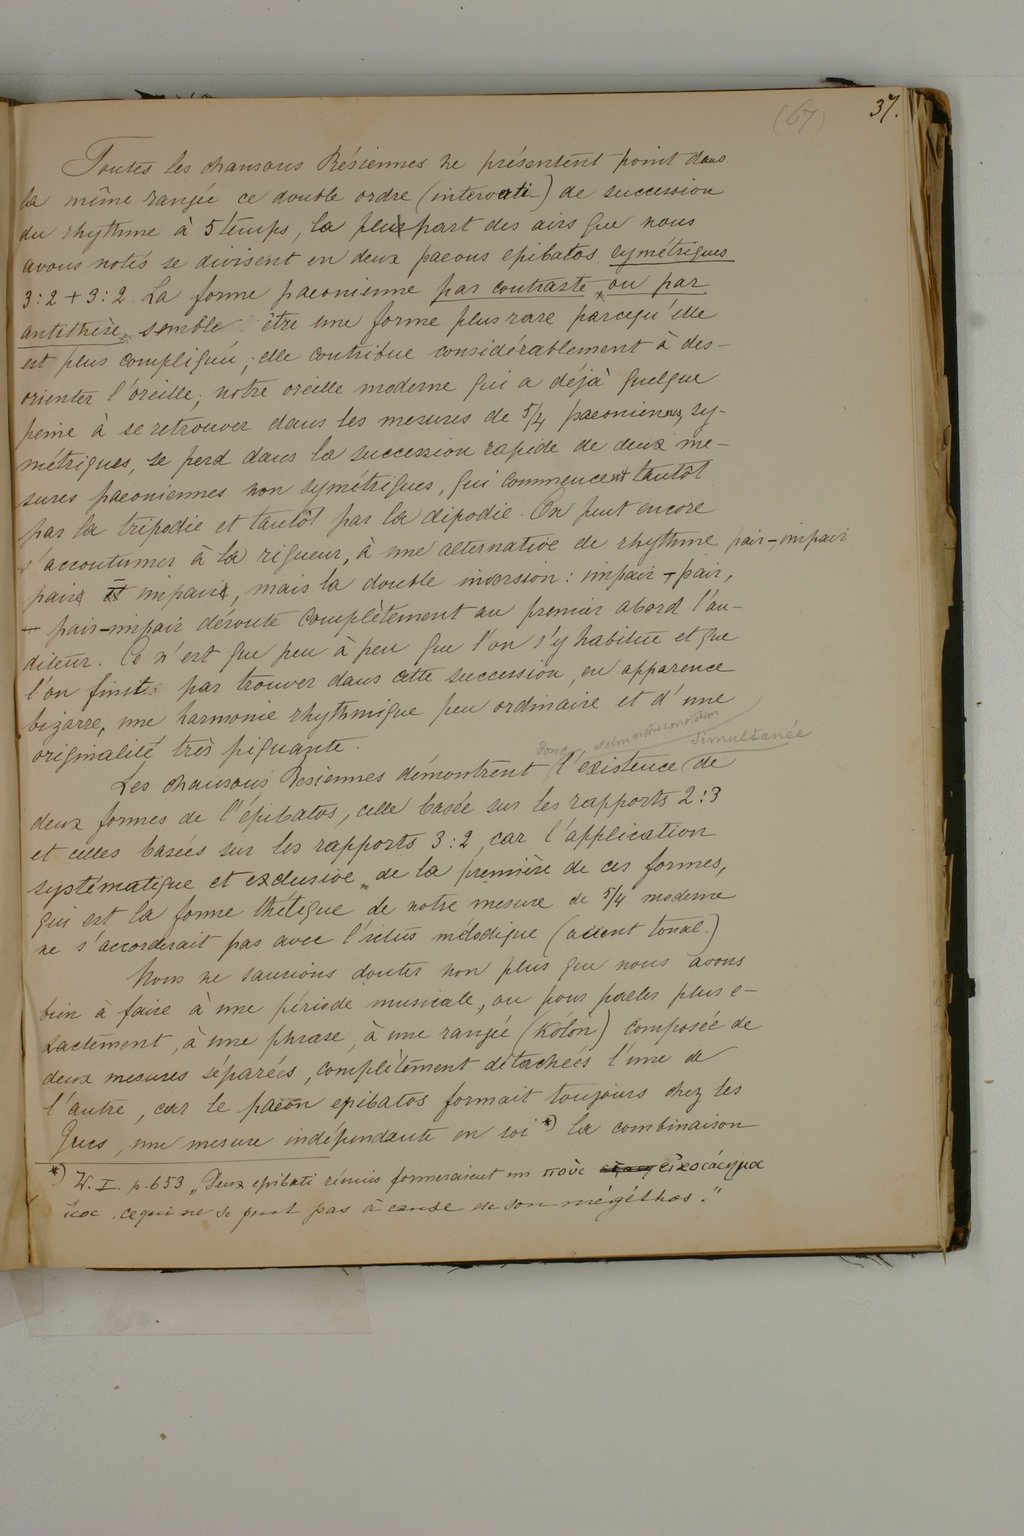 (67) 37.
Toutes les chansons Résiennes ne présentent point dans
la même rangée ce double ordre (interverti) de succession
du rhythme à 5 temps, la plupart des airs que nous
avons notés se divisent en deux paeons epibatos symétriques
3:2 + 3:2. La forme paeonienne par contraste, ou par
antithèse, semble être une forme plus rare parcequ'elle
est plus compliquée; elle contribue considérablement à des-
orienter l'oreille; notre oreille moderne qui a déjà quelque
peine à se retrouver dans les mesures de 5/4 paeoniennes, sy-
métriques, se perd dans la succession rapide de deux me-
sures paeoniennes non symétriques, qui commencent tantôt
par la tripodie et tantôt par la dipodie. On peut encore
s'accoutumer à la rigueur, à une alternative de rhythme pair-impair
pair et impair, mais la double inversion: impair + pair,
+ pair-impair déroute complètement au premier abord l'au-
diteur. Ce n'est que peu à peu que l'on s'y habitue et que
l'on finit par trouver dans cette succession, en apparence
bizarre, une harmonie rhythmique peu ordinaire et d'une
originalité très piquante.
donc, selon notre conviction simultanée
Les chansons Resiennes démontrent l'existence de
deux formes de l'épibatos, celle basée sur les rapports 2:3
et celles basées sur les rapports 3:2, car l'application
systématique et exclusive, de la première de ces formes,
qui est la forme thétique de notre mesure de 5/4 moderne
ne s'accorderait pas avec l'ictus mélodique (accent tonal.)
Nous ne saurions douter non plus que nous avons
bien à faire à une période musicale, ou pour parler plus e-
xactement, à une phrase, à une rangée (Kólon) composée de
deux mesures séparées, complètement détachées l'une de
l'autre, car le paeon epibatos formait toujours chez les
Grecs, une mesure indépendante en soi *) la combinaison
*) W. I. p. 653 „Deux epibati réunis formeraient un ποὺς εἰκοσάσημος
ce qui ne se peut pas à cause de son mégéthos."